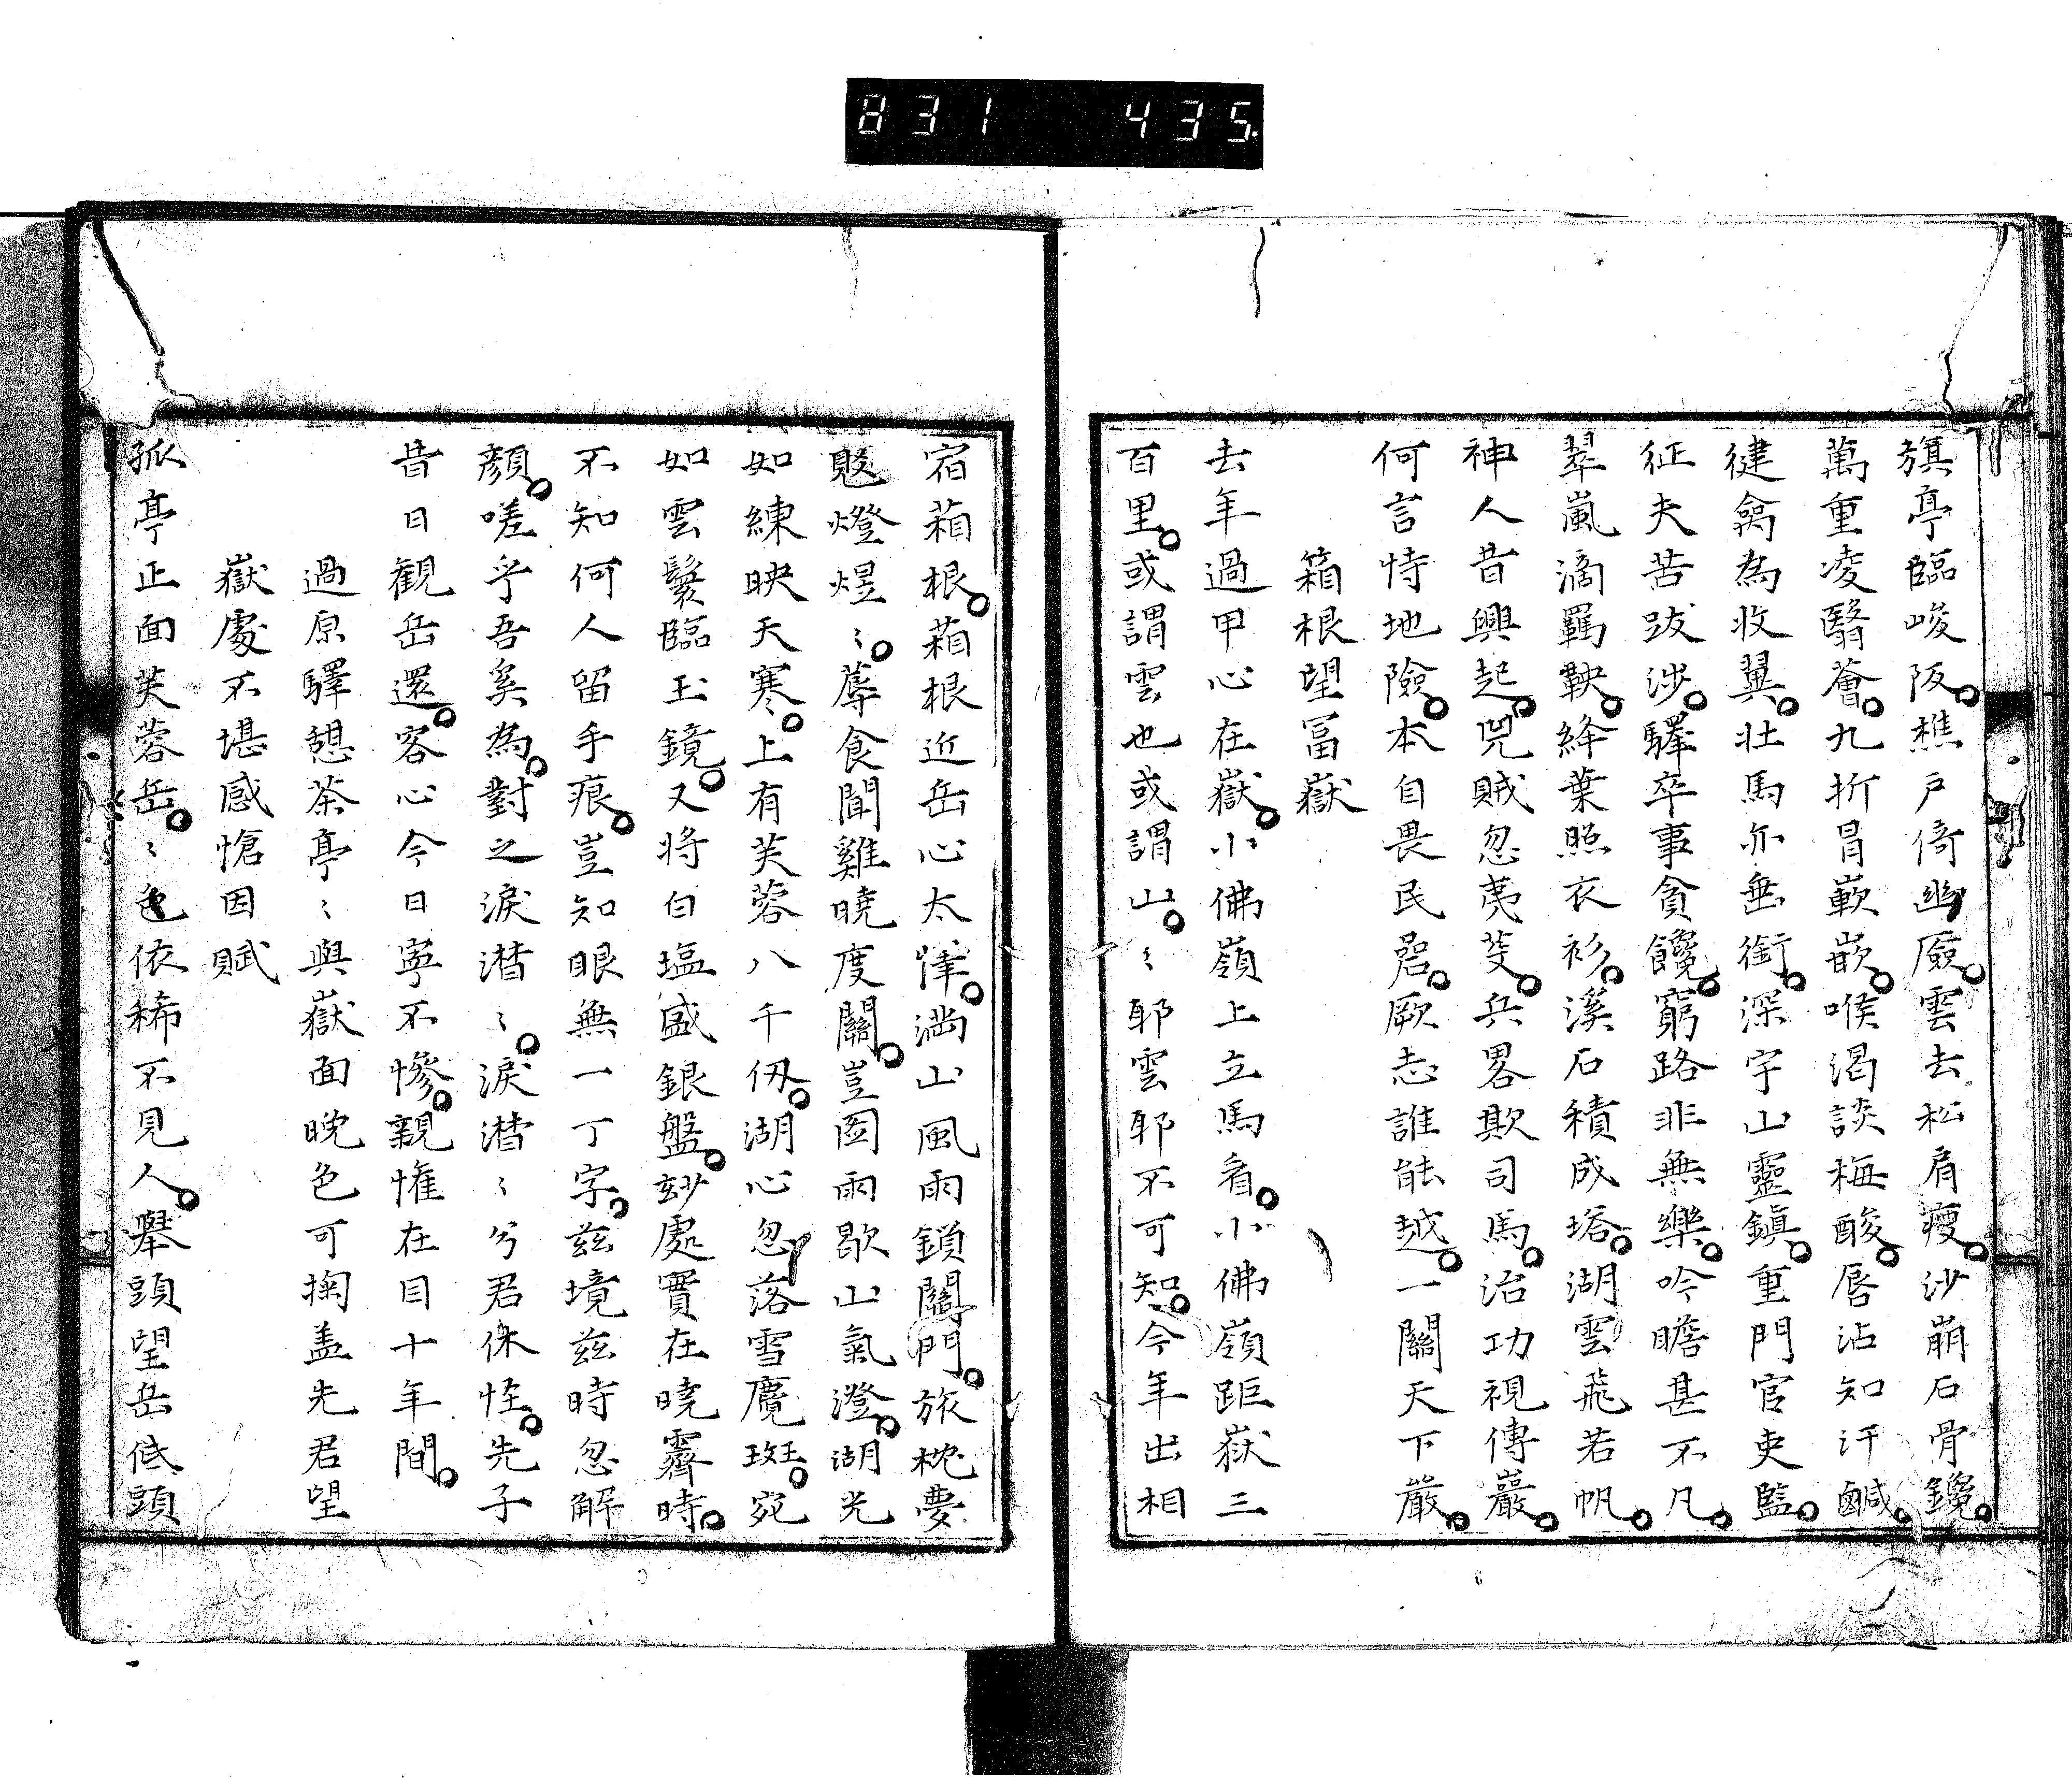 831 435
旗亭臨峻阪。樵戶倚幽廞。雲去松肩瘦。沙崩石骨鑱。
萬重凌翳薈。九折冒嶔嵌。喉渴談梅酸。唇沾知汗鹹。
健禽為收翼。壯馬亦垂銜。深宇山靈鎭。重門官吏監。
征夫苦跋涉。驛卒事貪饞。窮路非無樂。吟瞻甚不凡。
翠嵐滴羈鞅。絳葉照衣衫。溪石積成塔。湖雲飛若帆。
神人昔興起。兇賊忽夷芟。兵畧欺司馬。治功視傅巖。
何言恃地險。本自畏民碞。厥志誰能越。一關天下嚴。
箱根望冨嶽
去年過甲心在嶽。小佛嶺上立馬看。小佛嶺距嶽三
百里。或謂雲也或謂山。〻耶雲耶不可知。今年出相
宿箱根。箱根近岳心太悻。満山風雨鎖關門。旅枕夢
覐燈煜〻。蓐食聞雞曉度關。豈図雨歇山氣澄。湖光
如練映天寒。上有芙蓉八千仭。湖心忽落雪魔斑。宛
如雲鬟臨玉鏡。又將白塩盛銀盤。玅處實在曉霽時。
不知何人留手痕。豈知眼無一丁字。茲境茲時忽解
顏。嗟乎吾奚為。對之淚潸〻。淚潸〻兮君休怪。先子
昔日観岳還。客心今日寧不慘。親懽在目十年間。
過原驛憩茶亭〻與嶽面晚色可掬盖先君望
嶽處不堪感愴因賦
孤亭正面芙蓉岳。〻色依稀不見人。擧頭望岳低頭